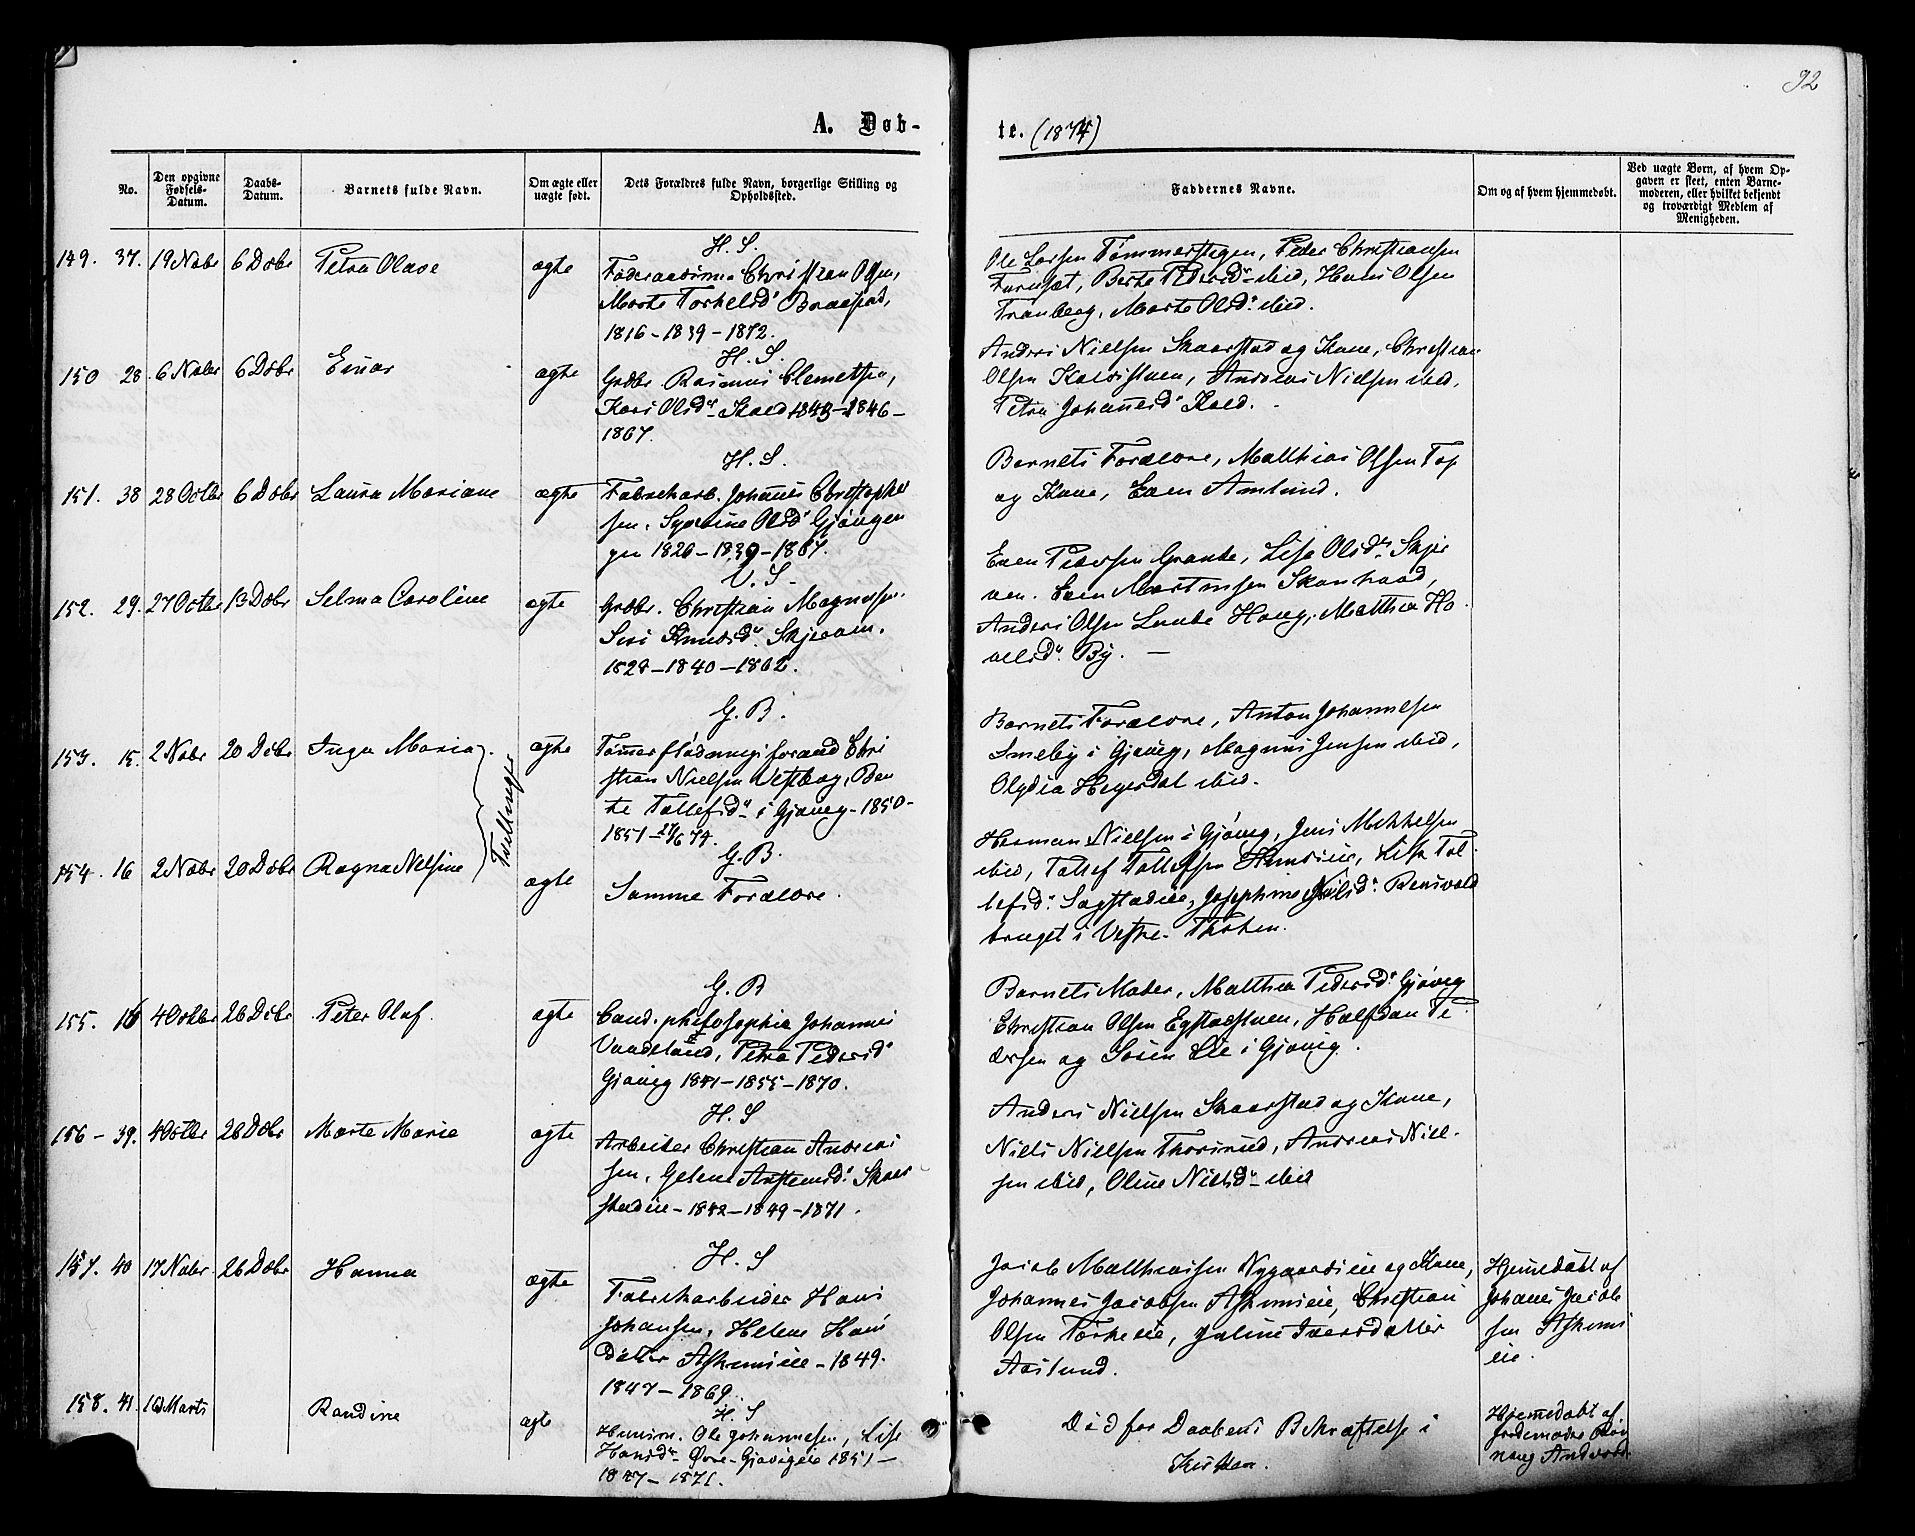 92
A. Døb-
te. (1874)
No.
Den opgivne Fødsels-Datum.
Daabs-Datum.
Barnets fulde Navn.
Om ægte eller uægte født.
Dets Forældres fulde Navn, borgerlige Stilling og Opholdssted.
Faddernes Navne.
Om og af hvem hjemmedøbt.
Ved uægte Børn, af hvem Opgaven er skeet, enten Barnemoderen, eller hvilket bekjendt og troværdigt Medlem af Menigheden.
149. 37. 19 Nobr 6 Dcbr Petra Olave ægte
H. S.
Christian Olsen,
Marte Torkelsd. Braastad,
1816 - 1839 - 1872.
Ole Larsen Tømmerstigen, Peder Christiansen
Furuset, Berte Pedersd. ibid, Hans Olsen
Tranberg, Marte Olsd. ibid.
150 28. 6 Nobr 6 Dcbr Einar ægte
H. S.
Grdbr. Rasmus Clemetsen,
Kari Olsd. Skold 1843 - 1846 -
1867.
Anders Nielsen Skaarstad og Kone, Christian
Olsen Kalvistuen, Andreas Nielsen ibid,
Petra Johannesd. Kold.
151. 38 28 Octbr 6 Dcbr Laura Mariane ægte
H. S.
Fabrikarb. Johannes Christopher
sen, Syverine Olsd. Gjøvigen
gen 1826 - 1839 - 1867.
Barnets Forældre, Matthias Olsen Top
og Kone, Even Amlund.
152. 29. 27 Octbr 13 Dcbr Selma Caroline ægte
V. S.
Grdbr. Christian Magnussen,
Siri Knudsd. Skjerven.
1828 - 1840 - 1862.
Even Pedersen Grande, Lise Olsd. Skjer
ven. Even Martinsen Skonhaad,
Anders Olsen Lunde Haug, Matthea Ho
velsd. By. —
153. 15. 2 Nobr 20 Dcbr Inga Maria ægte
Tvillinger
G. B.
Tømmerflødningsformand Chri
stian Nielsen Vestbag, Ben
te Tollefsd. i Gjøvig - 1850 -
1851 - 27/6 74.
Barnets Forældre, Anton Johannesen
Smeby i Gjøvig, Magnus Jensen ibid,
Olydia Hegerdal ibid.
154. 16 2 Nobr 20 Dcbr Ragna Nelsine ægte
G. B.
Samme Forældre.
Herman Nielsen i Gjøvig, Jens Mikkelsen
ibid, Tollef Tollefsen Hunseie, Lise Tol
lefsd. Sagstadeie, Josephine Nilsd. Rensvold
bruget i Vestre Thoten.
155. 16 4 Octbr 26 Dcbr Peter Olaf ægte
G. B
Cand. philosophie Johannes
Vandeland, Petra Pedersd.
Gjøvig 1841 - 1855 - 1870.
Barnets Moder, Matthea Pedersd. Gjøvig
Christian Olsen Egstadstuen, Halfdan Pe
dersen og Søren Lie i Gjøvig.
156 - 39. 4 Octbr 26 Dcbr Marte Marie ægte
H. S
Arbeider Christian Andreas
sen, Gelene Arstensd. Skaar
stadeie - 1842 - 1849 - 1871.
Anders Nielsen Skaarstad og Kone,
Niels Nielsen Thorsrud, Andreas Niel-
sen ibid, Oline Nielsd. ibid
157. 40 17 Nobr. 26 Dcbr Hanna ægte
H. S
Fabrikarbeider Hans
Johansen, Helene Hans
datter Askimseie - 1849.
1847 - 1869.
Jacob Matthiassen Nygaardseie og Kone,
Johannes Jacobsen Askimseie, Christian
Olsen Torkeeie, Juline Iversdatter
Aaslund.
Hjemmedøbt af
Johanes Jacob
sen Askims
eie.
158. 41. 16 Marts Randine ægte
H. S
Husm. Ole Johannesen, Lise
Hansd. Øvre-Gjøvigeie 1851 -
1847 - 1871.
Død før Daabens Bekræftelse i
Kirken.
Hjemmedøbt af